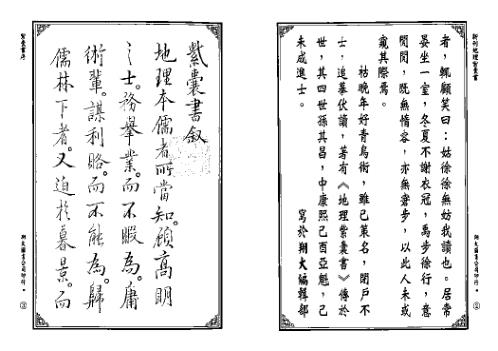 新刊地理紫囊書
者，輒顧笑曰：姑徐徐無妨我讀也。居常
晏坐一室，冬夏不謝衣冠，萬步徐行，意
閒閒，既無惰容，亦無窘步，以此人未或
窺其際焉。
祜晚年好青烏術，雖已策名，閉戶不
士，追摹伏讀，著有《地理紫囊書》傳於
世，其四世孫其昌，中康熙己酉亞魁，己
未成進士。
寫於翔大編輯部
翔大圖書公司印行
②
紫囊書序
紫囊書叙
地理本儒者所當知。顧高明
之士。務舉業。而不暇為。庸
術輩。謀利賂。而不能為。歸
儒林下者。又迫於暮景。而
翔大圖書公司印行
③